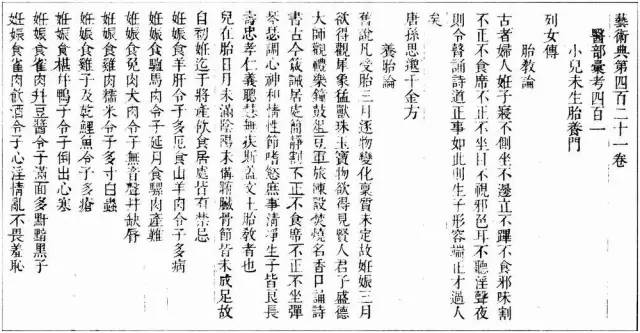 藝術典第四百二十一卷
醫部彙考四百一
小兒未生胎養門
列女傳
胎教論
古者婦人妊子寢不側坐不邊立不蹕不食邪味割
不正不食席不正不坐目不視邪色耳不聽淫聲夜
則令瞽誦詩道正事如此則生子形容端正才過人
矣
唐孫思邈千金方
養胎論
舊說凡受胎三月逐物變化稟質未定故妊娠三月
欲得觀犀象猛獸珠玉寶物欲得見賢人君子盛德
大師觀禮樂鐘鼓俎豆軍旅陳設焚燒名香口誦詩
書古今箴誡居處簡靜割不正不食席不正不坐彈
琴瑟調心神和情性節嗜慾庶事清淨生子皆良長
壽忠孝仁義聰慧無疾斯蓋文王胎教者也
兒在胎日月未滿陰陽未備腑臟骨節皆未成足故
自初妊迄于將產飲食居處皆有禁忌
妊娠食羊肝令子多厄食山羊肉令子多病
妊娠食驢馬肉令子延月食騾肉產難
妊娠食兔肉犬肉令子無音聲幷缺唇
妊娠食雞肉糯米令子多寸白蟲
妊娠食雞子及乾鯉魚令子多瘡
妊娠食椹幷鴨子令子倒出心寒
妊娠食雀肉幷豆醬令子滿面多䵟黯黑子
妊娠食雀肉飲酒令子心淫情亂不畏羞恥